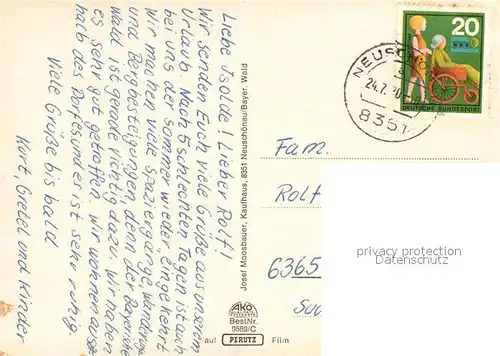 Liebe Isolde! Lieber Rolf!
Wir senden Euch viele Grüße aus unserem
Urlaub. Nach 5 schlechten Tagen ist auch
bei uns der Sommer wieder eingekehrt
Wir machen viele Spaziergänge, Wandlungen
und Bergbesteigungen, denn der Bayerische
Wald ist gerade richtig dazu. Wir haben
es sehr gut getroffen. Wir wohnen ausser
halb des Dorfes und es ist sehr ruhig.
Viele Grüße bis bald
Kurt, Gretel und Kinder
Josef Moosbauer, Kaufhaus, 8351 Neuschönau/Bayer. Wald
AKO
BestNr.
9569/C
auf PERUTZ Film
NEUSCHÖ
24.7.
8351
20
DEUTSCHE BUNDESPOST
Fam.
Rolf
6365
privacy protection
www.ansichtskarten-center.de